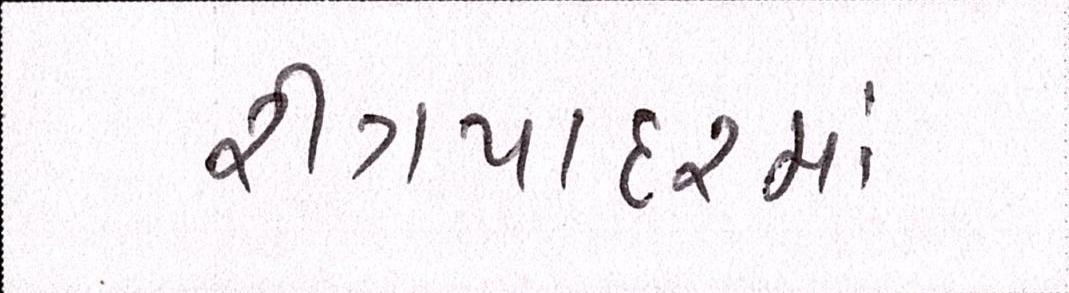 રીગપાદરમાં